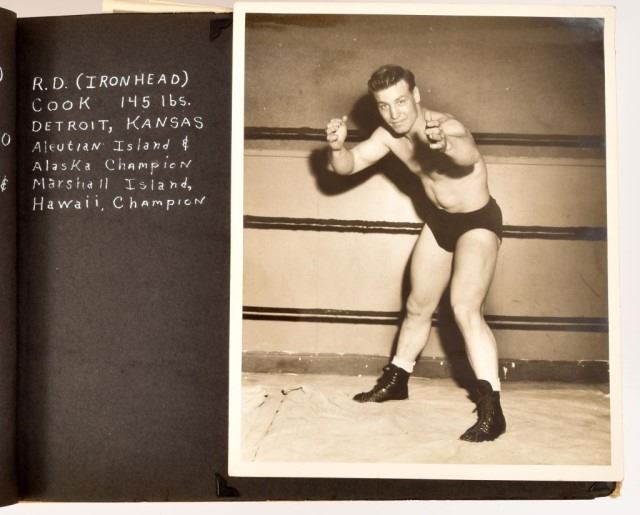 R.D. (IRONHEAD)
COOK 145 lbs.
DETROIT, KANSAS
Aleutian Island &
Alaska Champion
Marshall Island,
Hawaii, Champion
)
0
&